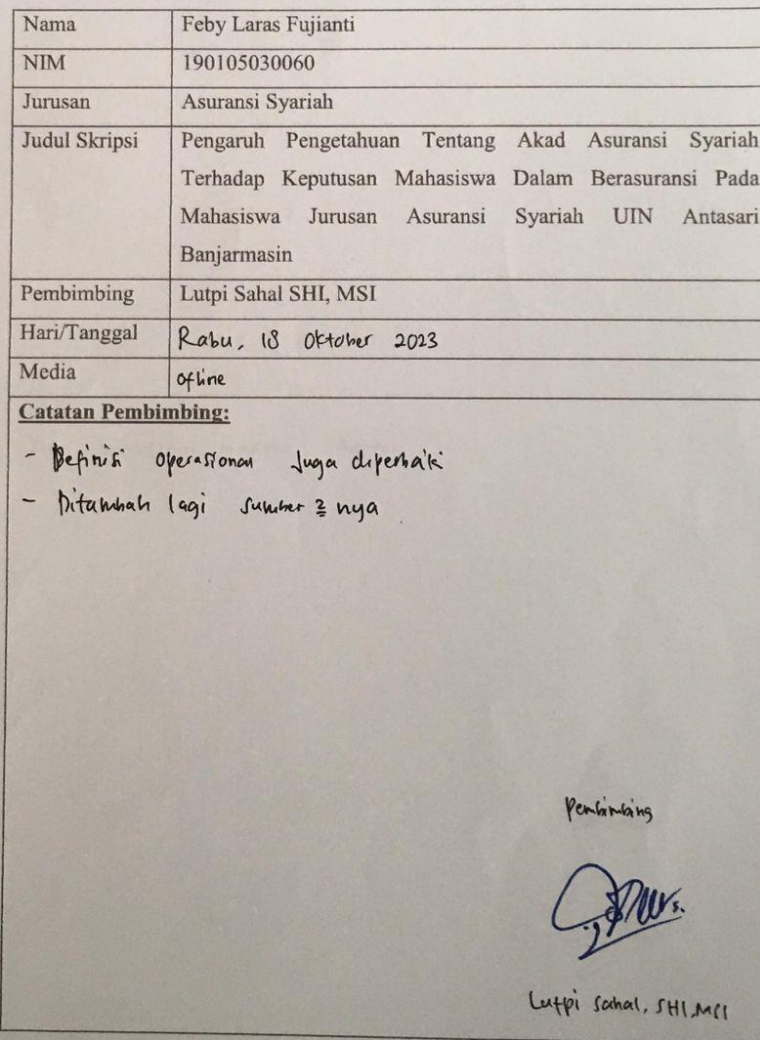 Nama Feby Laras Fujianti
NIM 190105030060
Jurusan Asuransi Syariah
Judul Skripsi Pengaruh Pengetahuan Tentang Akad Asuransi Syariah
Terhadap Keputusan Mahasiswa Dalam Berasuransi Pada
Mahasiswa Jurusan Asuransi Syariah UIN Antasari
Banjarmasin
Pembimbing Lutpi Sahal SHI, MSI
Hari/Tanggal Rabu, 18 Oktober 2023
Media ofline
Catatan Pembimbing:
- Definisi operasional Juga diperbaiki
- Ditambah lagi sumber 2 nya
Pembimbing
Lutpi Sahal, SHI, MSI